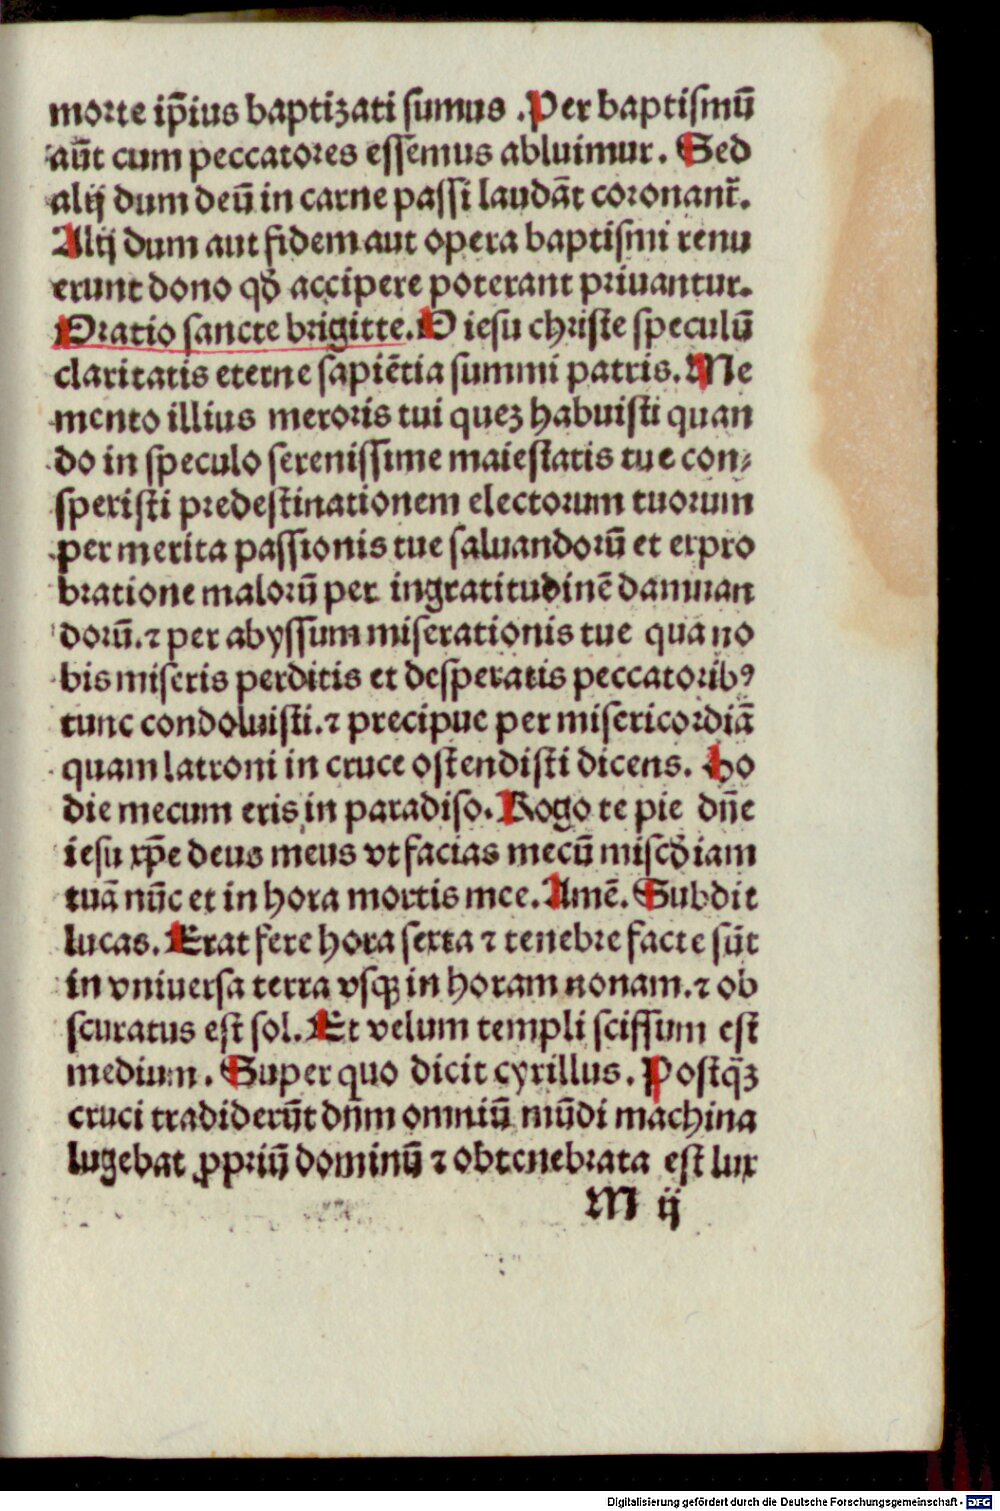 morte ip̄ius baptizati sumus . Per baptismū
aūt cum peccatores essemus abluimur. Sed
alij dum deū in carne passi laudāt coronanr̄.
Alij dum aut fidem aut opera baptismi renu
erunt dono qď accipere poterant priuantur.
Oratio sancte brigitte. O iesu christe speculū
claritatis eterne sapiētia summi patris. Me
mento illius meroris tui quez habuisti quan
do in speculo serenissime maiestatis tue con⸗
speristi predestinationem electorum tuorum
per merita passionis tue saluandorū et expro
bratione malorū per ingratitudinē damnan
dorū. ⁊ per abyssum miserationis tue qua no
bis miseris perditis et desperatis peccatorib⁹
tunc condoluisti. ⁊ precipue per misericordiā
quam latroni in cruce ostendisti dicens. Ho
die mecum eris in paradiso. Rogo te pie dn̄e
iesu xp̄e deus meus vt facias mecū miscďiam
tuā nūc et in hora mortis mee. Amē. Subdit
lucas. Erat fere hora sexta ⁊ tenebre facte sūt
in vniuersa terra vsqꝫ in horam nonam. ⁊ ob
scuratus est sol. Et velum templi scissum est
medium. Super quo dicit cyrillus. Postq̄ꝫ
cruci tradiderūt dn̄m omniū mūdi machina
lugebat ꝓpriū dominū ⁊ obtenebrata est lux
M ij
Digitalisierung gefördert durch die Deutsche Forschungsgemeinschaft - DFG